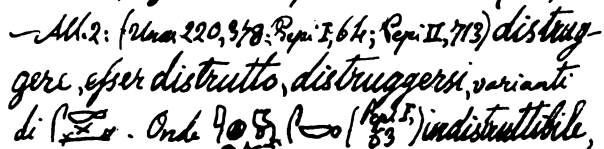 — All. 2: (Unas 220, 378; Pepi I, 64; Pepi II, 713) distrug-
gere, esser distrutto, distruggersi, varianti
di . Onde (Pepi I, 53) indistruttibile,